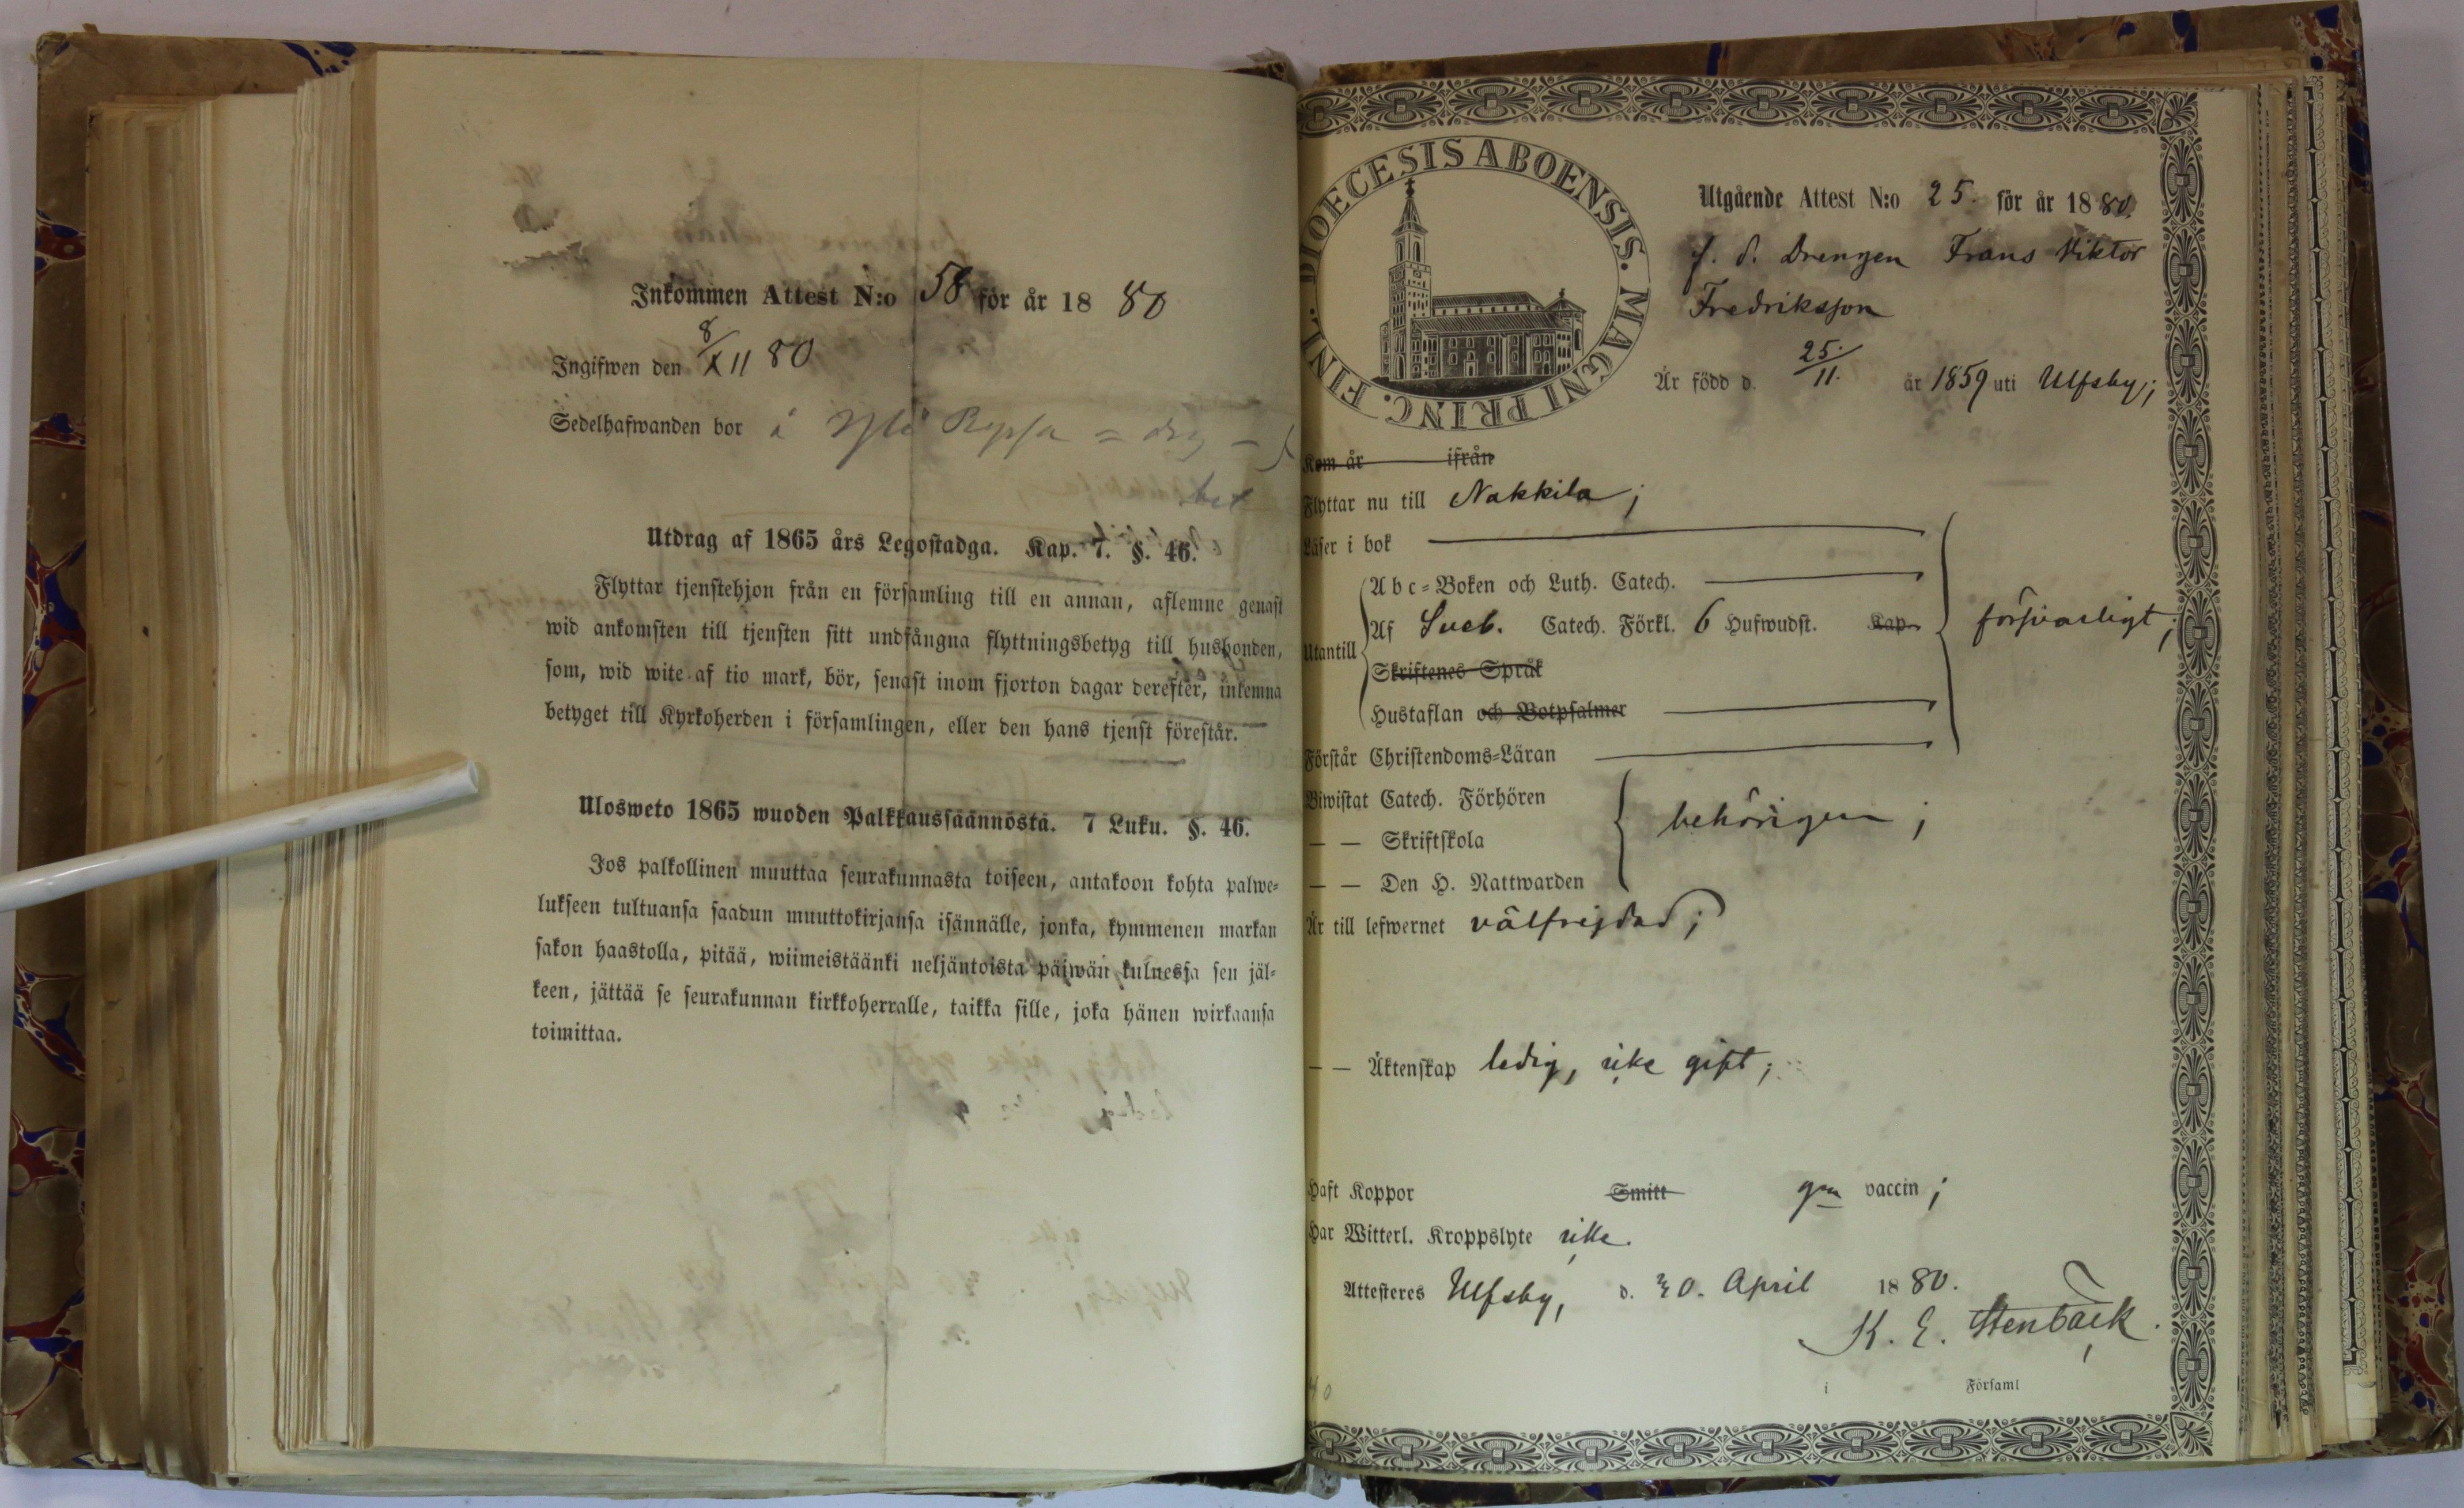 Inkommen Attest N:o 58 för år 18 80
Ingifwen den 8/XII 80
Sedelhafwanden bor i Yli
Utdrag af 1865 års Legostadga. Kap. 7. §. 46.
Flyttar tjenstehjon från en församling till en annan, aflemne genast
wid ankomsten till tjensten sitt undfångna flyttningsbetyg till husbonden,
som, wid wite af tio mark, bör, senast inom fjorton dagar derefter, inlemna
betyget till Kyrkoherden i församlingen, eller den hans tjenst förestår.
Ulosweto 1865 wuoden Palkkaussäännöstä. 7 Luku. §. 46.
Jos palkollinen muuttaa seurakunnasta toiseen, antakoon kohta palwe-
lukseen tultuansa saadun muuttokirjansa isännälle, jonka, kymmenen markan
sakon haastolla, pitää, wiimeistäänki neljäntoista päiwän kulnessa sen jäl-
keen, jättää se seurakunnan kirkkoherralle, taikka sille, joka hänen wirkaansa
toimittaa.
DIOECESIS ABOENSIS. MAGNI PRINC. FINL.
Utgående Attest N:o 25. för år 18 80.
f. d. Drengen Frans Viktor
Fredriksson
Är född d. 25/11. år 1859 uti Ulfsby;
Kom år ifrån
Flyttar nu till Nakkila;
Läser i bok
Utantill
Abc-Boken och Luth. Catech.
Af Sveb. Catech. Förkl. 6 Hufwudst. Kap. försvarligt;
Skriftenes Språk
Hustaflan och Botpsalmer
Förstår Christendoms-Läran
Biwistat Catech. Förhören
— — Skriftskola behörigen;
— — Den H. Nattwarden
Är till lefwernet välfrejdad;
— — Äktenskap ledig, icke gift;
Haft Koppor Smitt gm vaccin;
Har Witterl. Kroppslyte icke.
Attesteras Ulfsby, d. 30. April 18 80.
K. E. Stenbäck.
i Församl